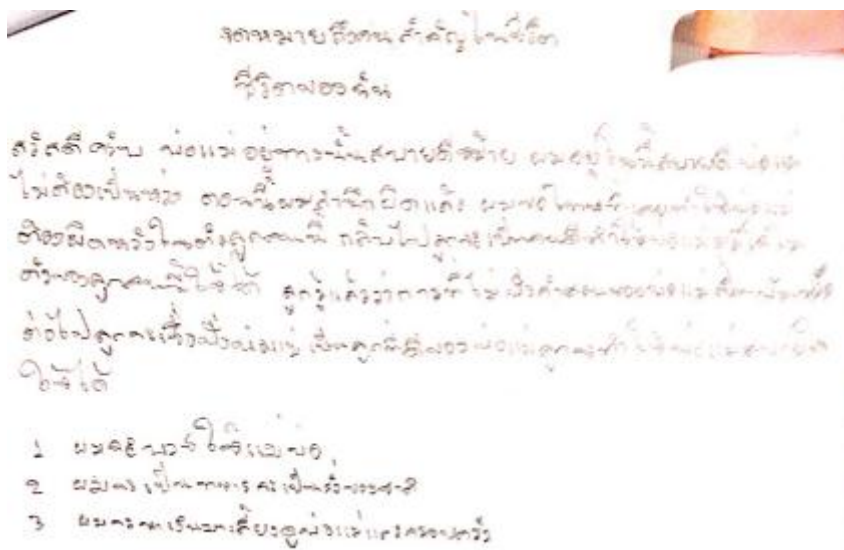 จดหมายถึงคนสำคัญในชีวิต
ชีวิตของฉัน
สวัสดีครับ พ่อแม่อยู่ทางนั้นสบายดีไหม ผมอยู่ในนี้สบายดี พ่อแม่
ไม่ต้องเป็นห่วง ตอนนี้ผมสำนึกผิดแล้ว ผมขอโทษที่เคยทำให้พ่อแม่
ต้องผิดหวังในตัวลูกคนนี้ กลับไปลูกจะเป็นคนดี
ตัวของลูกคนนี้ให้ได้ ลูกรู้แล้วว่าการที่ไม่เชื่อคำสอนของพ่อแม่
ต่อไปลูกจะเชื่อฟังพ่อแม่ เป็นลูกที่ดีของพ่อแม่ลูกจะทำให้พ่อแม่สบายใจ
ให้ได้
1 ผมจะบวชให้แม่พ่อ
2 ผมจะเป็นทหารจะเป็นรั้วของชาติ
3 ผมจะหาเงินมาเลี้ยงดูพ่อแม่และครอบครัว